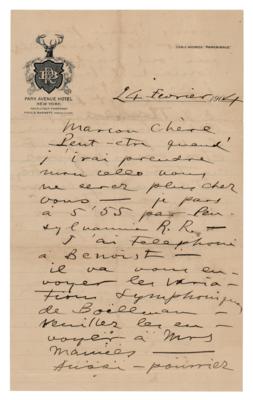 CABLE ADDRESS
PARK AVENUE HOTEL
NEW YORK
24 février 1904
Marion Chère
Peut-etre quand
j'irai prendre
mon cello vous
ne serez plus chez
vous — je pars
à 5'55 par Pen-
sylvannie R.R.
J'ai telephoné
à Benoist —
il va vous en-
voyer les Varia-
tions Symphoniques
de Boëllman —
veuillez les en-
voyer à Mrs
Aussi — pourriez